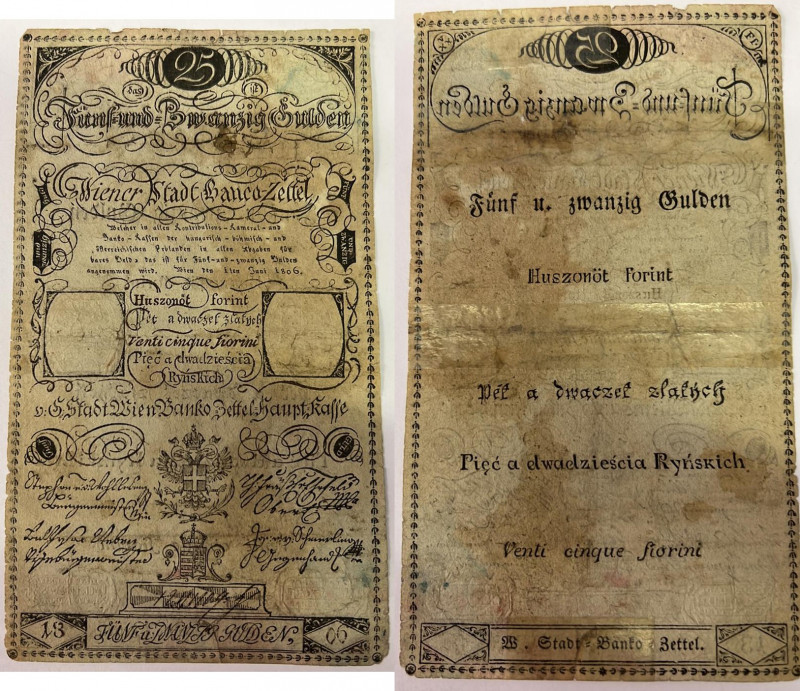 25
das ist
Fünf-und-Zwanzig Gulden
Wiener Stadt Banco Zettel
Welcher in allen Kontributions-Kameral-und
Banko-Kassen der hungarisch-böhmisch-und
österreichischen Erblanden in allen Abgaben für
bares Geld, das ist für Fünf-und-zwanzig Gulden
angenommen wird. Wien den 1ten Juni 1806.
Huszonöt forint
Pět a dwaczet zlatých
Venti cinque fiorini
Pięć a dwadzieścia
Ryńskich
v. G. Stadt Wien Banko Zettel Haupt Kasse
18
06
FÜNF u. ZWANZIG GULDEN,
25
Fünf-und-Zwanzig Gulden
Fünf u. zwanzig Gulden
Huszonöt forint
Pět a dwaczet zlatých
Pięć a dwadzieścia Ryńskich
Venti cinque fiorini
W. Stadt-Banko-Zettel.